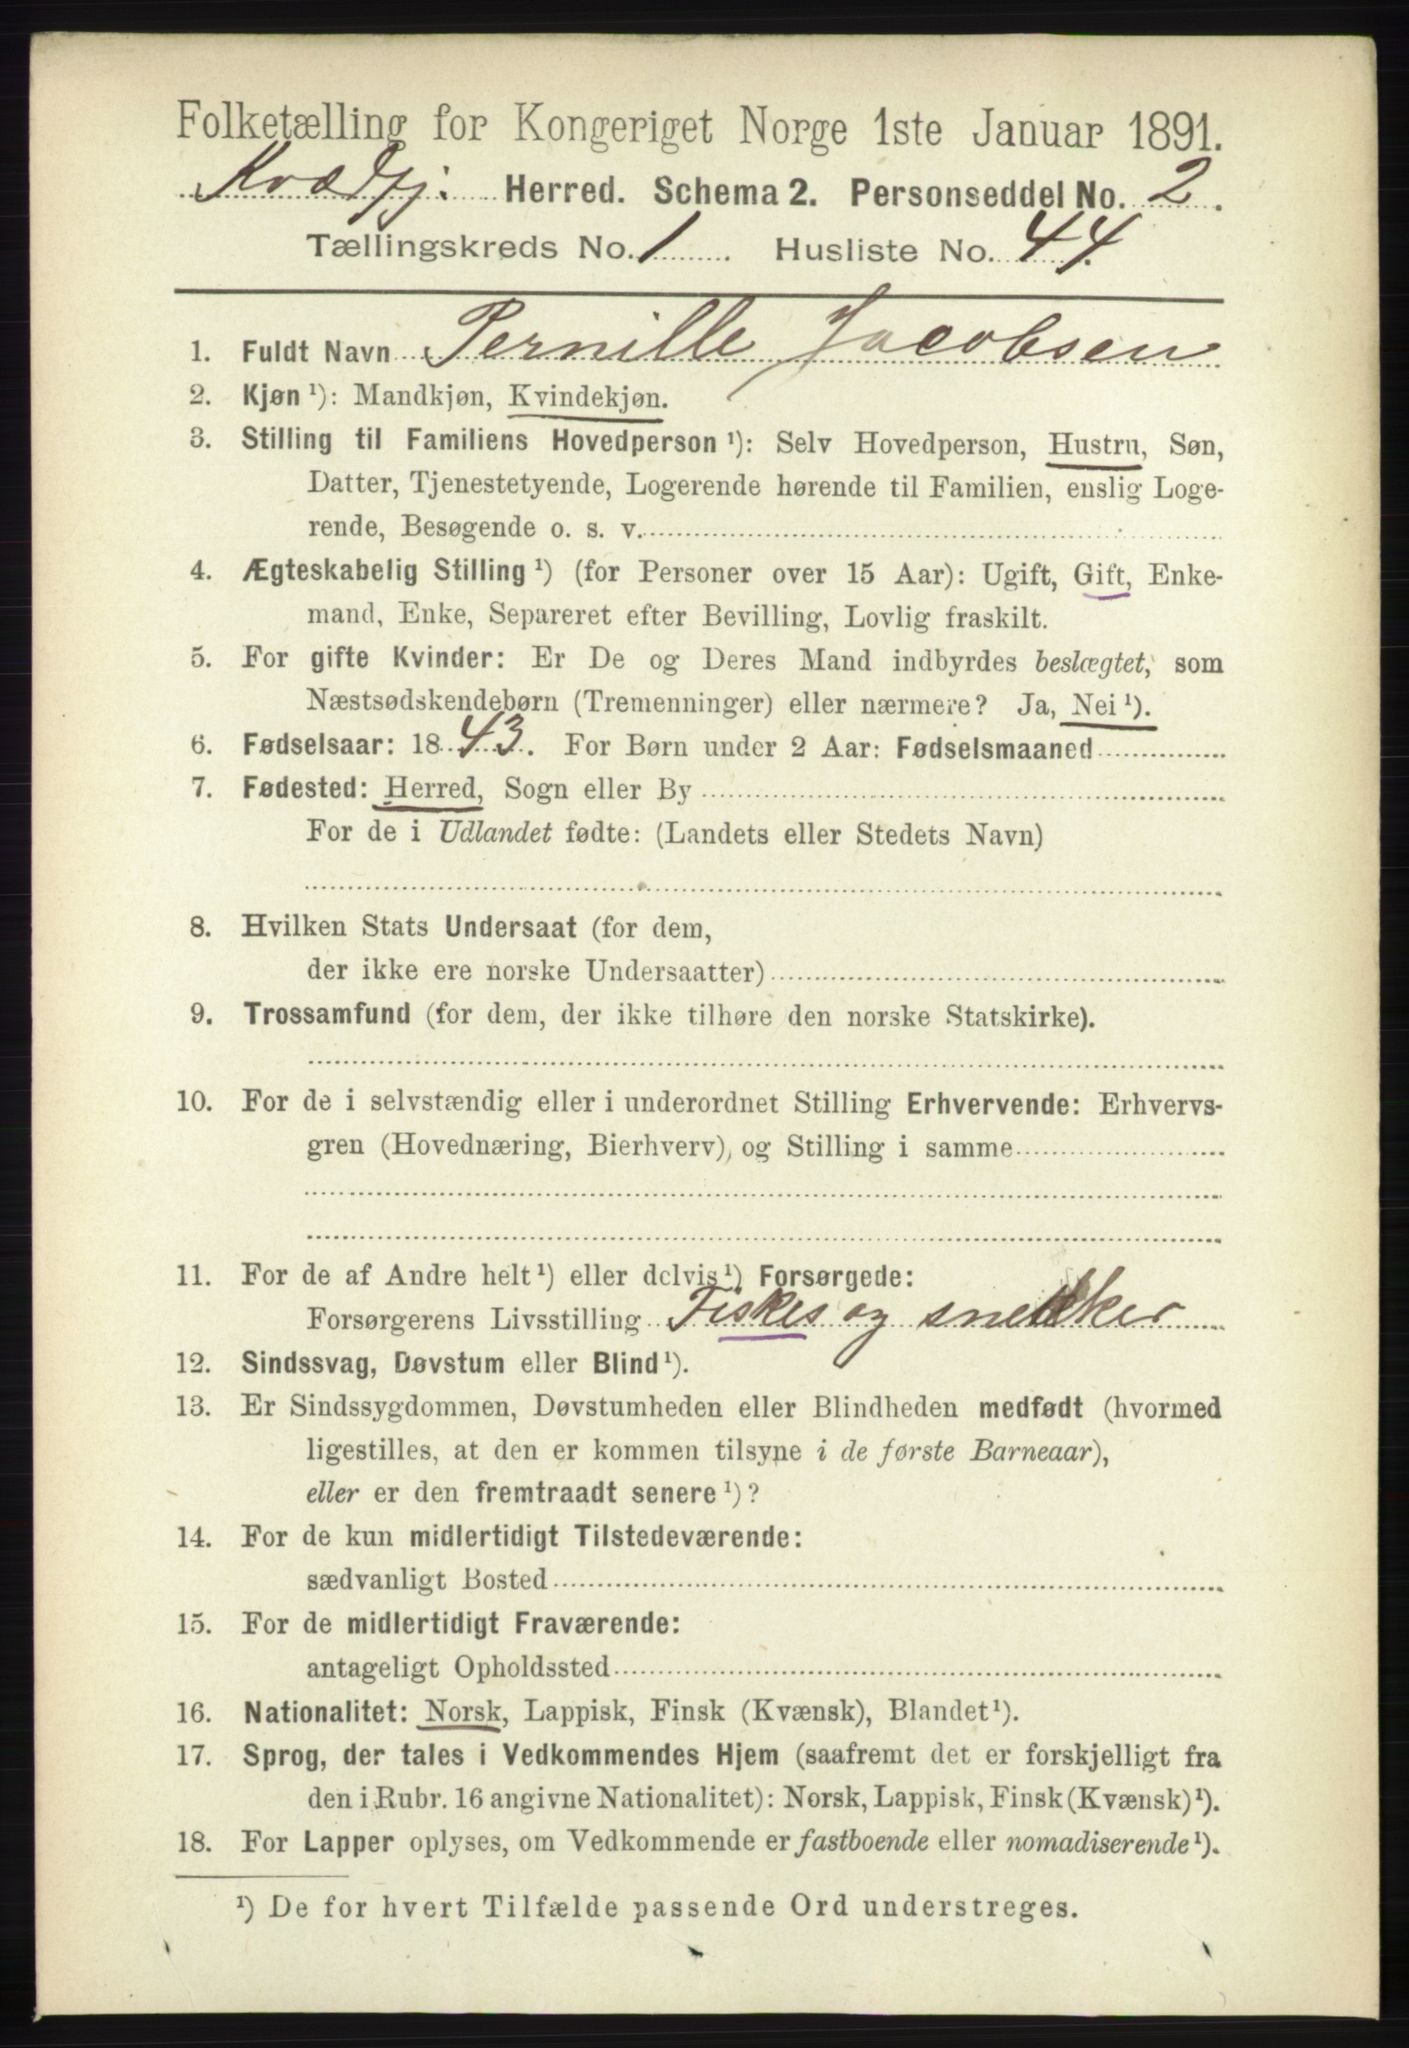 Folketælling for Kongeriget Norge 1ste Januar 1891.
Kvædfj. Herred. Schema 2. Personseddel No. 2.
Tællingskreds No. 1 Husliste No. 44.
1. Fuldt Navn Pernille Jacobsen
2. Kjøn ¹): Mandkjøn, Kvindekjøn.
3. Stilling til Familiens Hovedperson ¹): Selv Hovedperson, Hustru, Søn,
Datter, Tjenestetyende, Logerende hørende til Familien, enslig Loge-
rende, Besøgende o. s. v.
4. Ægteskabelig Stilling ¹) (for Personer over 15 Aar): Ugift, Gift, Enke-
mand, Enke, Separeret efter Bevilling, Lovlig fraskilt.
5. For gifte Kvinder: Er De og Deres Mand indbyrdes beslægtet, som
Næstsødskendebørn (Tremenninger) eller nærmere? Ja, Nei ¹).
6. Fødselsaar: 1843. For Børn under 2 Aar: Fødselsmaaned
7. Fødested: Herred, Sogn eller By
For de i Udlandet fødte: (Landets eller Stedets Navn)
8. Hvilken Stats Undersaat (for dem,
der ikke ere norske Undersaatter)
9. Trossamfund (for dem, der ikke tilhøre den norske Statskirke).
10. For de i selvstændig eller i underordnet Stilling Erhvervende: Erhvervs-
gren (Hovednæring, Bierhverv), og Stilling i samme
11. For de af Andre helt ¹) eller delvis ¹) Forsørgede:
Forsørgerens Livsstilling Fiskes og snekker
12. Sindssvag, Døvstum eller Blind ¹).
13. Er Sindssygdommen, Døvstumheden eller Blindheden medfødt (hvormed
ligestilles, at den er kommen tilsyne i de første Barneaar),
eller er den fremtraadt senere ¹)?
14. For de kun midlertidigt Tilstedeværende:
sædvanligt Bosted
15. For de midlertidigt Fraværende:
antageligt Opholdssted
16. Nationalitet: Norsk, Lappisk, Finsk (Kvænsk), Blandet ¹).
17. Sprog, der tales i Vedkommendes Hjem (saafremt det er forskjelligt fra
den i Rubr. 16 angivne Nationalitet): Norsk, Lappisk, Finsk (Kvænsk) ¹).
18. For Lapper oplyses, om Vedkommende er fastboende eller nomadiserende ¹).
¹) De for hvert Tilfælde passende Ord understreges.